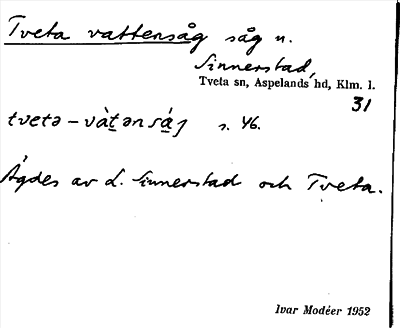 Tveta vattensåg såg n.
Sinnerstad,
Tveta sn, Aspelands hd, Klm. l.
31
tvetə – vàt̲ənsá̲g s. 46.
Ägdes av L. Sinnerstad och Tveta.
Ivar Modéer 1952